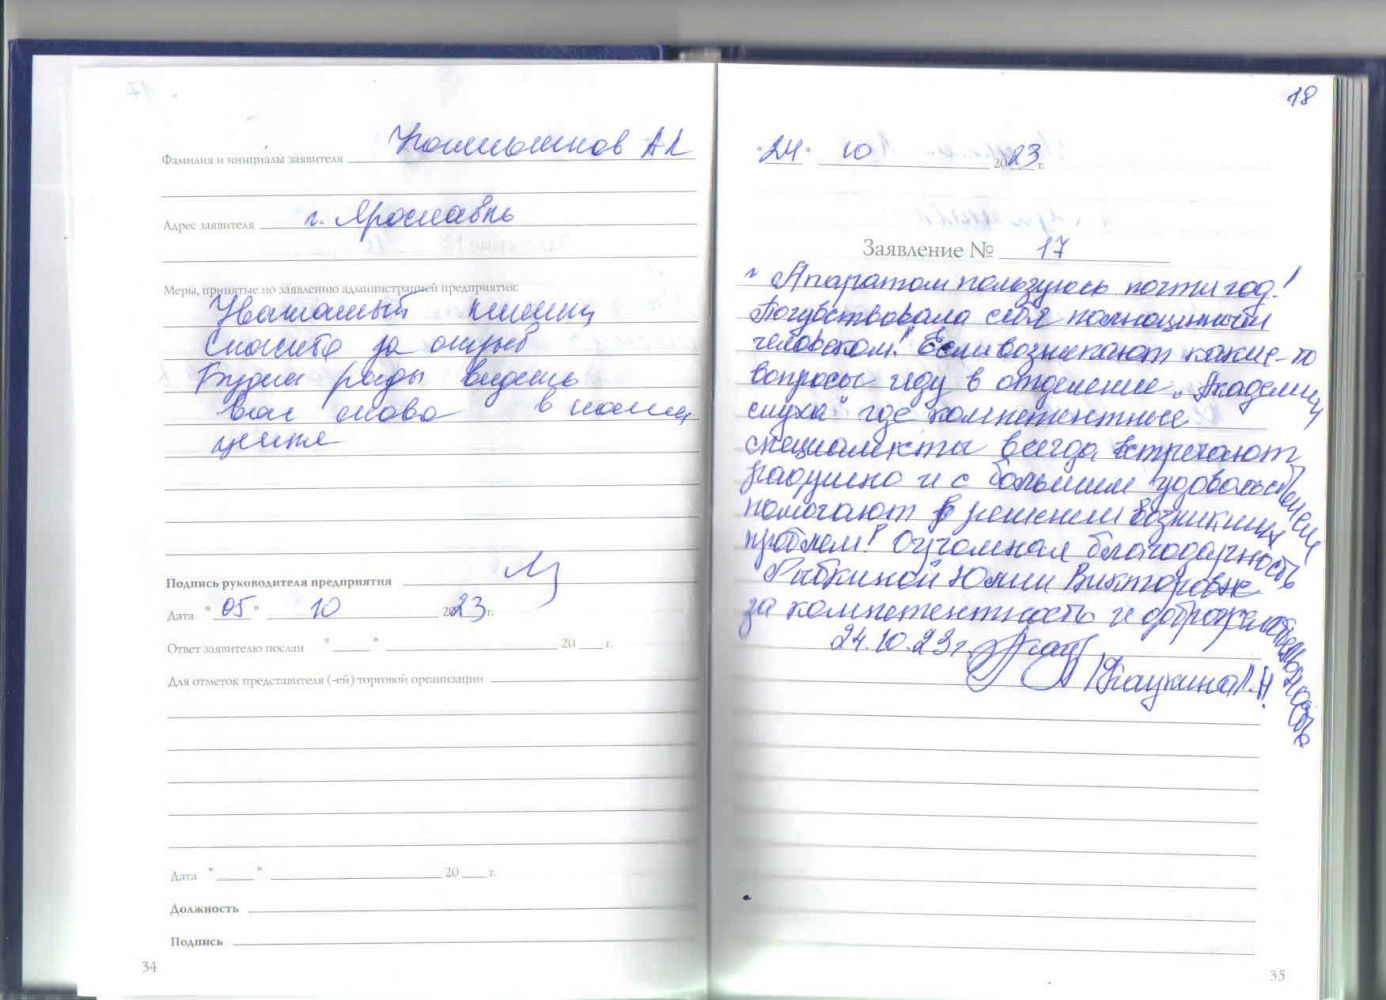 Фамилия и инициалы заявителя
Адрес заявителя г. Ярославль
Меры, принятые по заявлению администрацией предприятия:
Уважаемый
Спасибо за отзыв
Будем рады видеть
вас снова в нашем
центре
Подпись руководителя предприятия
Дата "05" 10 2023 г.
Ответ заявителю послан "___" ___ 20 ___ г.
Для отметок представителя (-ей) торговой организации
Дата "___" ___ 20 ___ г.
Должность
Подпись
34
18
"24" 10 2023 г.
Заявление № 17
Апаратом пользуюсь почти год!
Почувствовала себя полноценным
человеком! Если возникают какие-то
вопросы иду в отделение „Академии
слуха" где компетентные
специалисты всегда встречают
радушно и с большим удовольствием
помогают в решении возникших
проблем! Огромная благодарность
Рыбкиной Юлии Викторовне
за компетентность и доброжелательность
24.10.23г
35